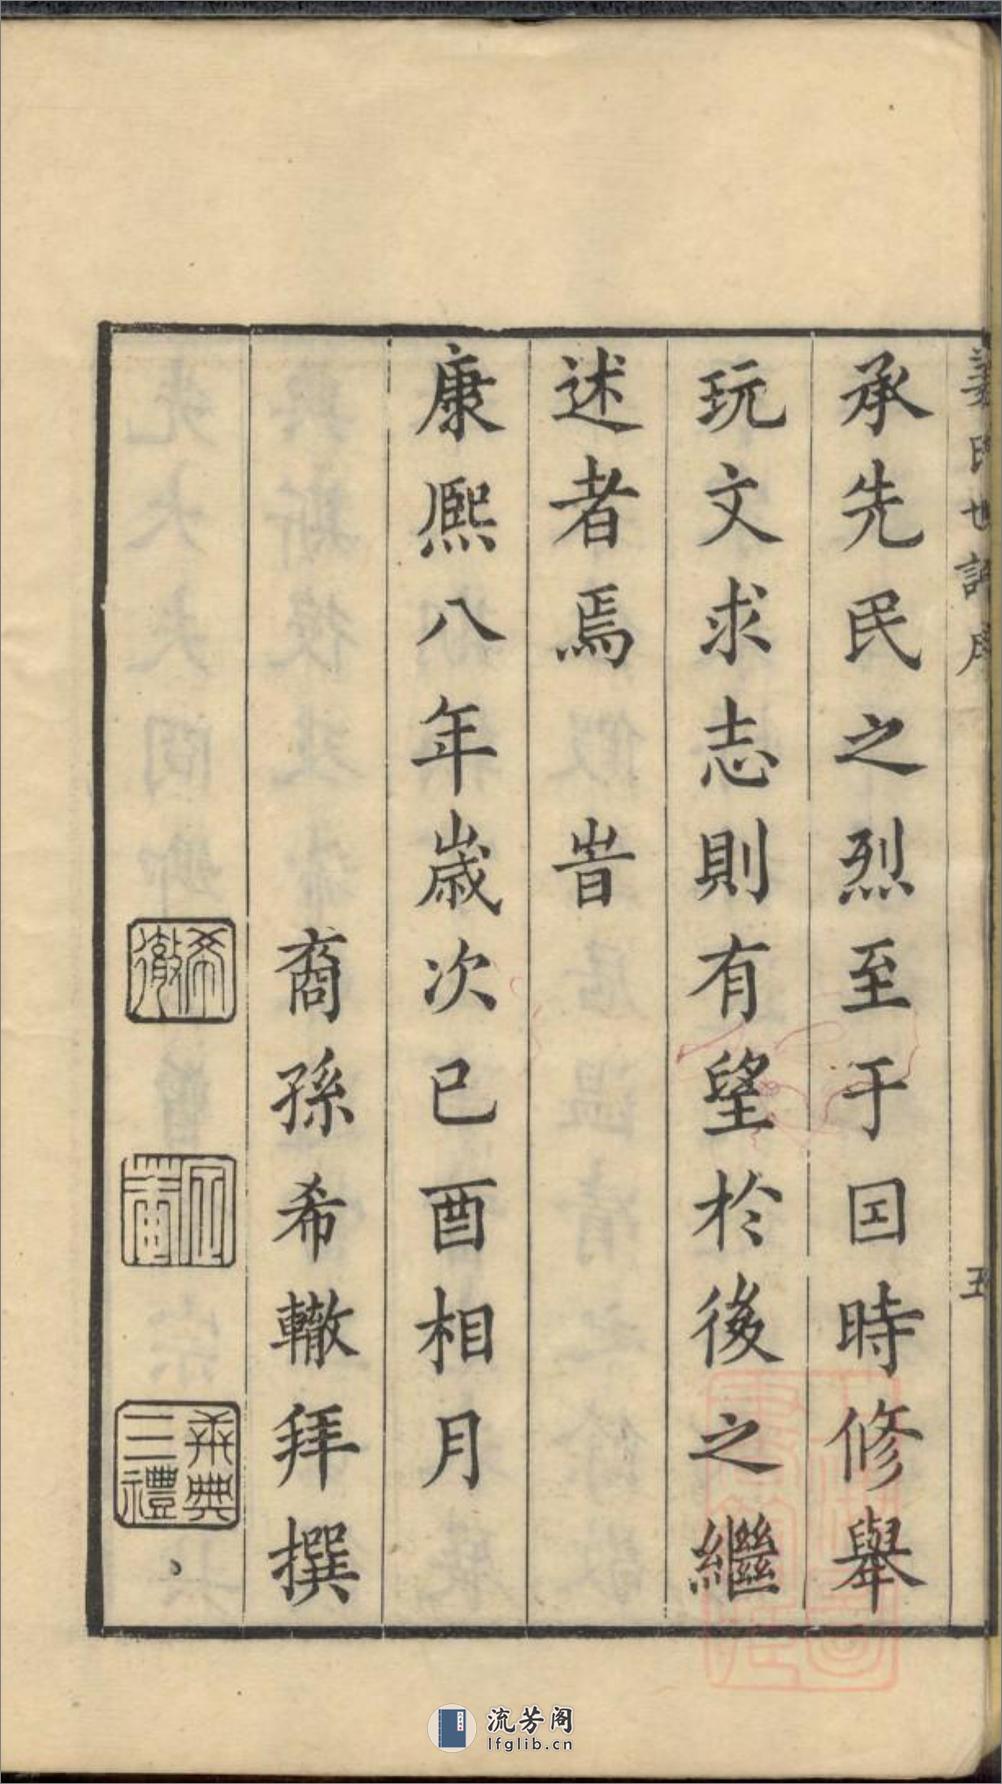 姜氏世譜序 五
承先民之烈至于囙時修舉
玩文求志則有望於後之繼
述者焉 旹
康熙八年歲次己酉相月
裔孫希轍拜撰
希徹
定菴
典三禮
流芳阁
lfglib.cn